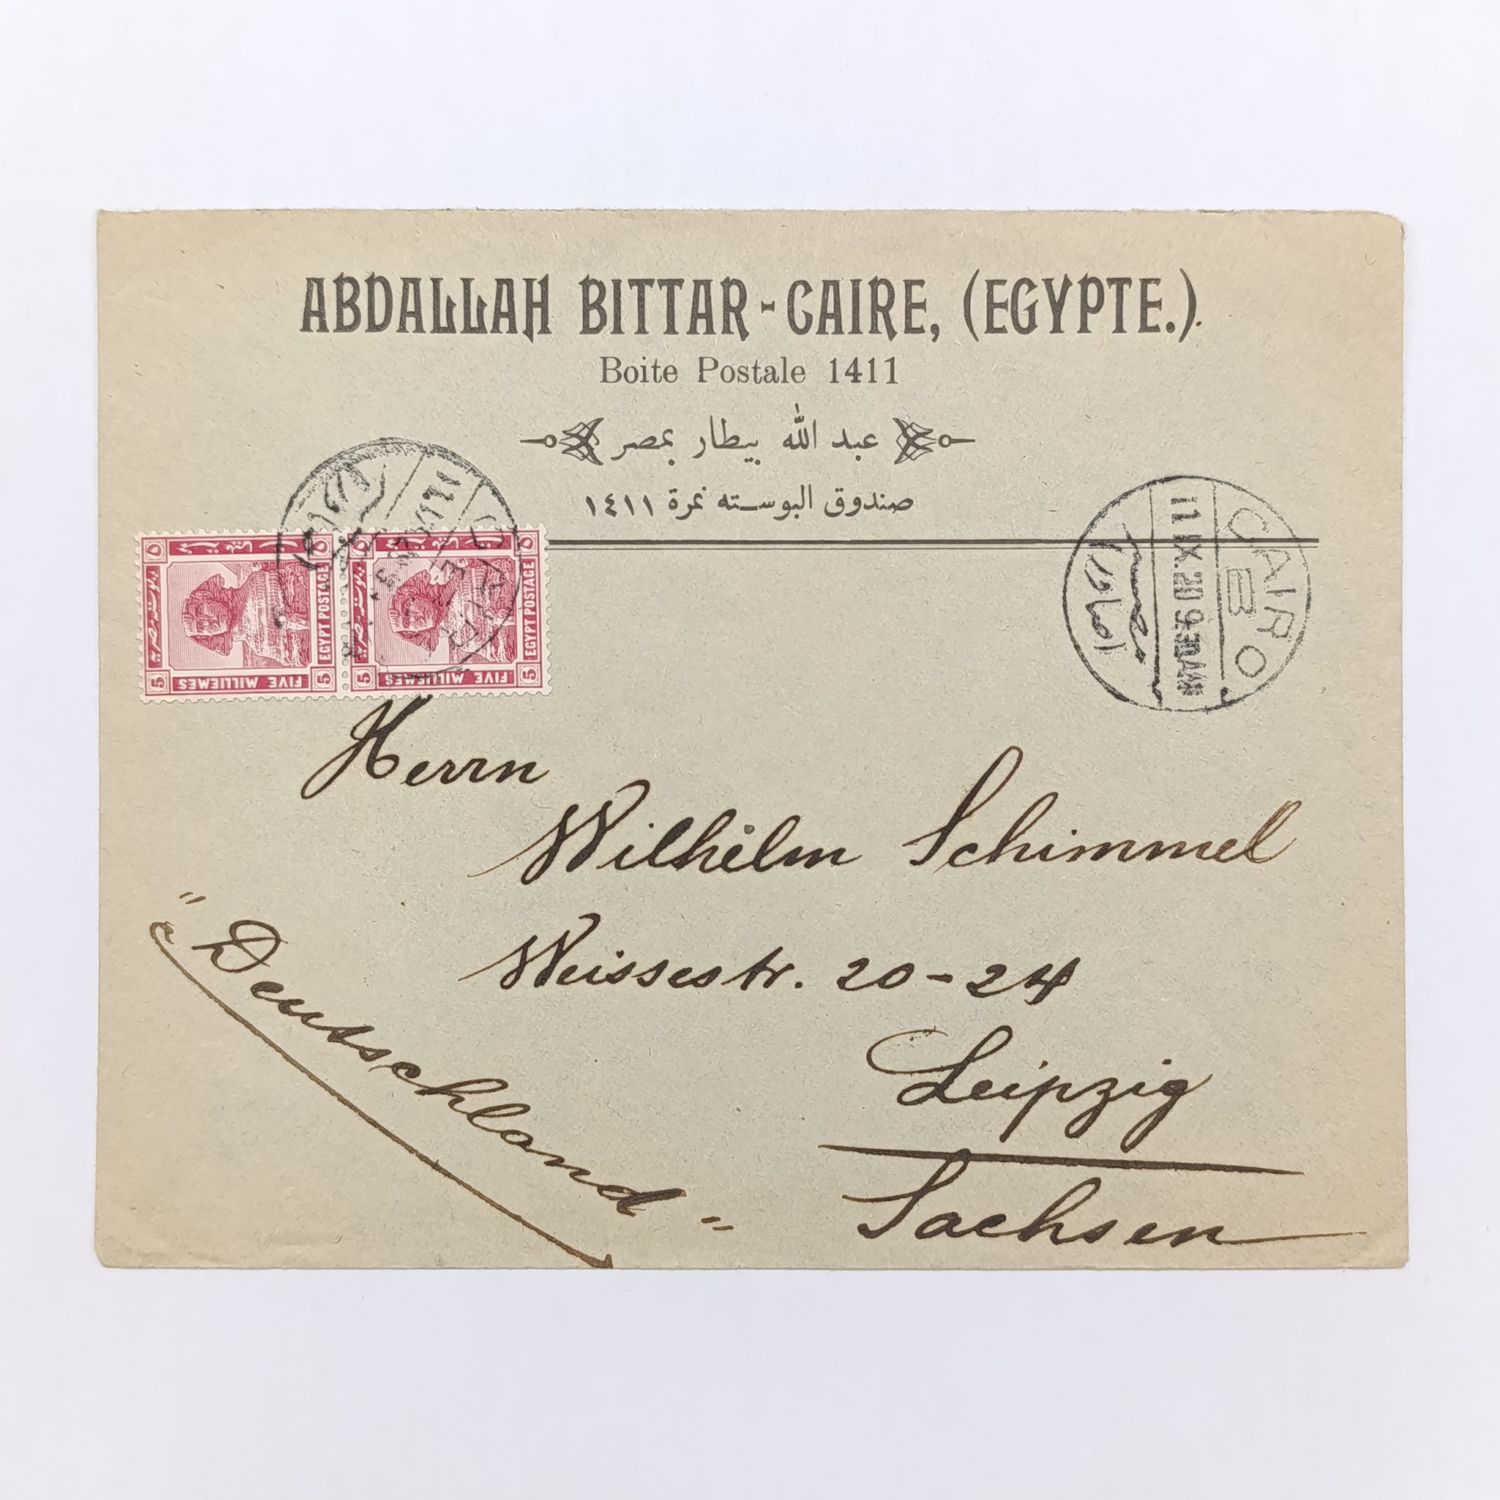 ABDALLAH BITTAR - CAIRE, (EGYPTE.)
Boite Postale 1411
عبد الله بيطار بمصر
صندوق البوسته نمرة ١٤١١
CAIRO
11.IX.20 9-30AM
مصر
FIVE MILLIEMES
EGYPT POSTAGE
5
5
FIVE MILLIEMES
EGYPT POSTAGE
5
5
Herrn
Wilhelm Schimmel
Weissestr. 20-24
Leipzig
Sachsen
"Deutschland"